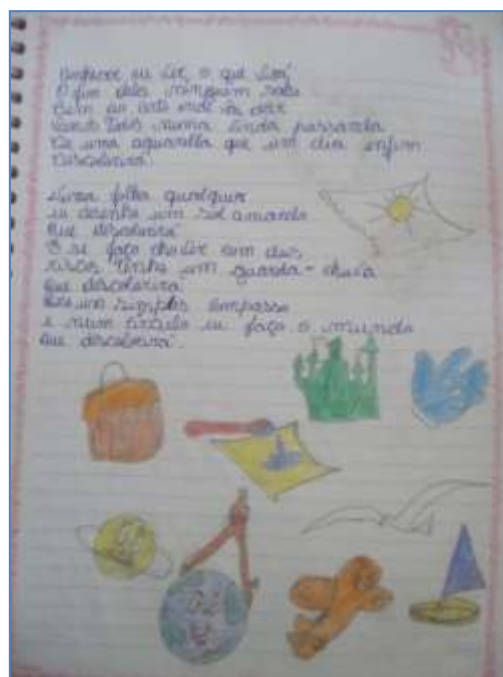 conhecer ou ver o que virá
O fim dela ninguém sabe
Bem ao certo onde vai dar
Vamos Todos numa linda passarela
De uma aquarella que um dia enfim
Descolorirá

Numa folha qualquer
eu desenho um sol amarelo
Que descolorirá
E se faço chover com dois
riscos tenho um guarda-chuva
Que descolorirá
um simples compasso
e num círculo eu faço o mundo
Que descolorirá.